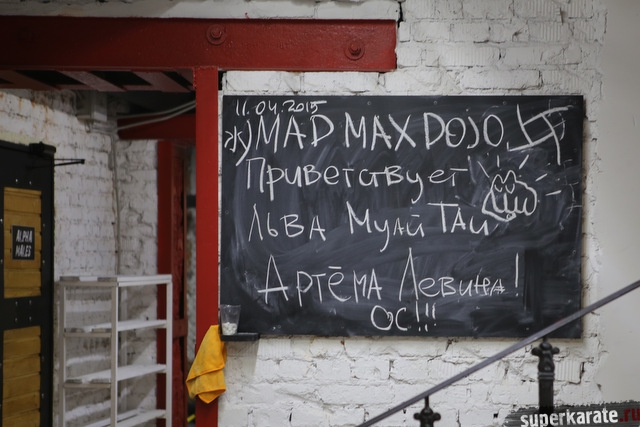 11.04.2015
ж) MAD MAX DOJO
Приветствует
Льва Муай Тай
Артёма Левина!
ОС!!!
ALPHA
MALES
superkarate.ru